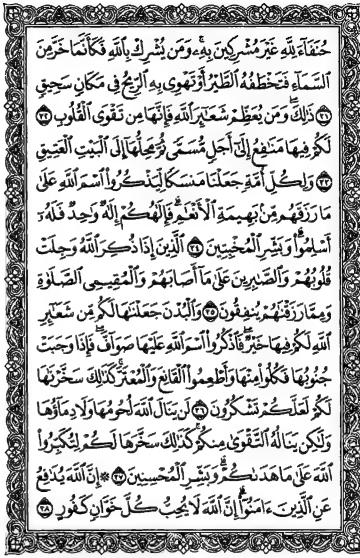 حُنَفَآءَ لِلَّهِ غَيۡرَ مُشۡرِكِينَ بِهِۦۚ وَمَن يُشۡرِكۡ بِٱللَّهِ فَكَأَنَّمَا خَرَّ مِنَ
ٱلسَّمَآءِ فَتَخۡطَفُهُ ٱلطَّيۡرُ أَوۡ تَهۡوِي بِهِ ٱلرِّيحُ فِي مَكَانٖ سَحِيقٖ
٣١ ذَٰلِكَۖ وَمَن يُعَظِّمۡ شَعَٰٓئِرَ ٱللَّهِ فَإِنَّهَا مِن تَقۡوَى ٱلۡقُلُوبِ ٣٢
لَكُمۡ فِيهَا مَنَٰفِعُ إِلَىٰٓ أَجَلٖ مُّسَمّٗى ثُمَّ مَحِلُّهَآ إِلَى ٱلۡبَيۡتِ ٱلۡعَتِيقِ
٣٣ وَلِكُلِّ أُمَّةٖ جَعَلۡنَا مَنسَكٗا لِّيَذۡكُرُواْ ٱسۡمَ ٱللَّهِ عَلَىٰ
مَا رَزَقَهُم مِّنۢ بَهِيمَةِ ٱلۡأَنۡعَٰمِۗ فَإِلَٰهُكُمۡ إِلَٰهٞ وَٰحِدٞ فَلَهُۥٓ
أَسۡلِمُواْۗ وَبَشِّرِ ٱلۡمُخۡبِتِينَ ٣٤ ٱلَّذِينَ إِذَا ذُكِرَ ٱللَّهُ وَجِلَتۡ
قُلُوبُهُمۡ وَٱلصَّٰبِرِينَ عَلَىٰ مَآ أَصَابَهُمۡ وَٱلۡمُقِيمِي ٱلصَّلَوٰةِ
وَمِمَّا رَزَقۡنَٰهُمۡ يُنفِقُونَ ٣٥ وَٱلۡبُدۡنَ جَعَلۡنَٰهَا لَكُم مِّن شَعَٰٓئِرِ
ٱللَّهِ لَكُمۡ فِيهَا خَيۡرٞۖ فَٱذۡكُرُواْ ٱسۡمَ ٱللَّهِ عَلَيۡهَا صَوَآفَّۖ فَإِذَا وَجَبَتۡ
جُنُوبُهَا فَكُلُواْ مِنۡهَا وَأَطۡعِمُواْ ٱلۡقَانِعَ وَٱلۡمُعۡتَرَّۚ كَذَٰلِكَ سَخَّرۡنَٰهَا
لَكُمۡ لَعَلَّكُمۡ تَشۡكُرُونَ ٣٦ لَن يَنَالَ ٱللَّهَ لُحُومُهَا وَلَا دِمَآؤُهَا
وَلَٰكِن يَنَالُهُ ٱلتَّقۡوَىٰ مِنكُمۡۚ كَذَٰلِكَ سَخَّرَهَا لَكُمۡ لِتُكَبِّرُواْ
ٱللَّهَ عَلَىٰ مَا هَدَىٰكُمۡۗ وَبَشِّرِ ٱلۡمُحۡسِنِينَ ٣٧ ۞ إِنَّ ٱللَّهَ يُدَٰفِعُ
عَنِ ٱلَّذِينَ ءَامَنُوٓاْۗ إِنَّ ٱللَّهَ لَا يُحِبُّ كُلَّ خَوَّانٖ كَفُورٍ ٣٨